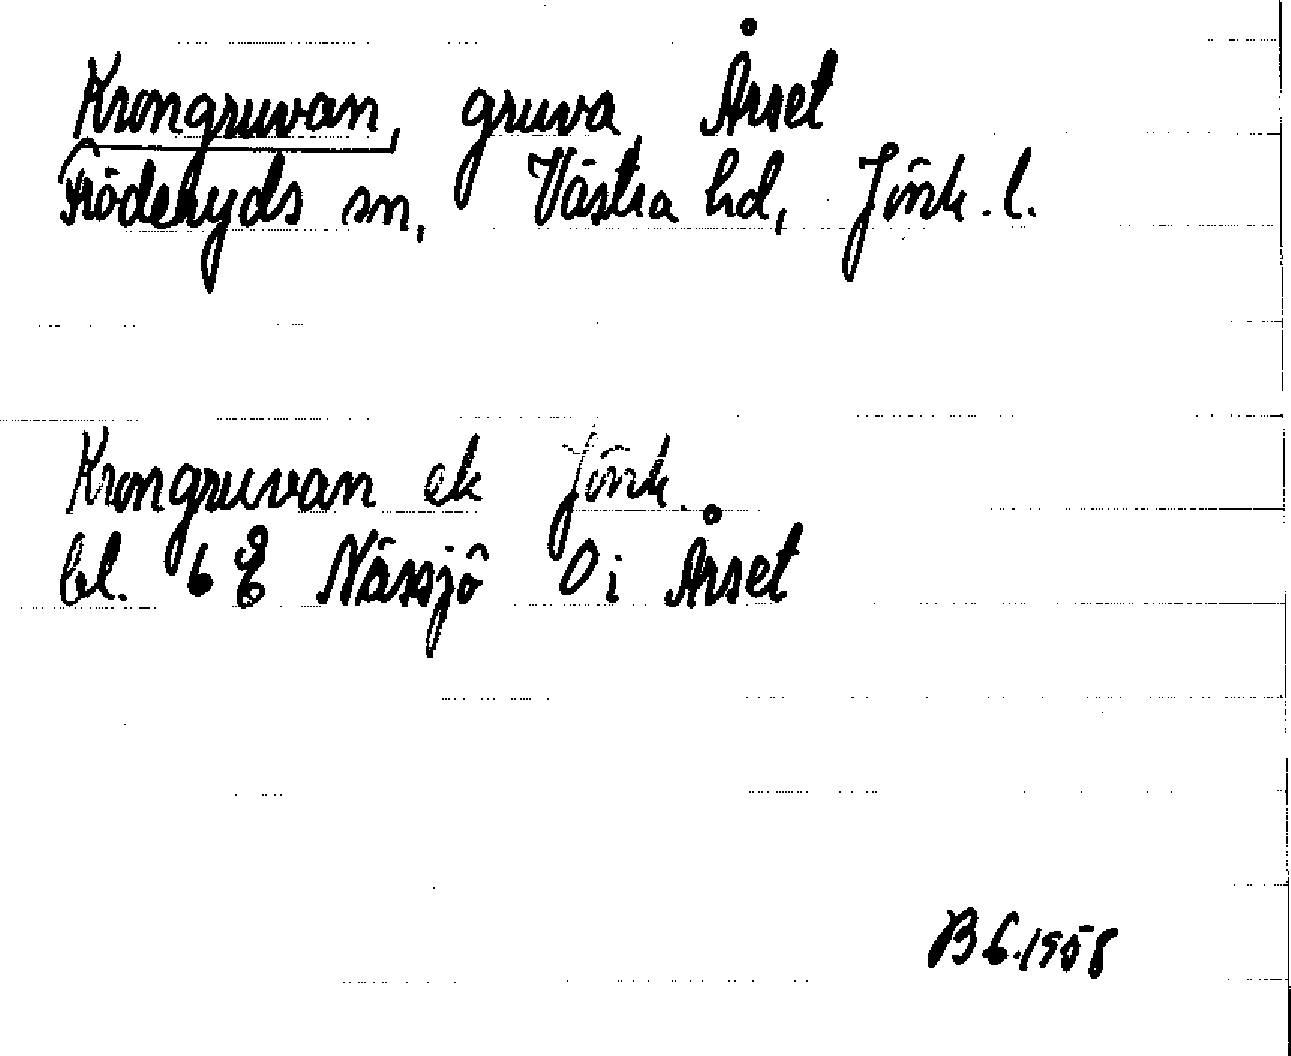 Krongruvan, gruva, Årset
Fröderyds sn, Västra hd, Jönk. l.
Krongruvan ek Jönk.
bl. 6 E Nässjö Öi Årset
B 6.1958